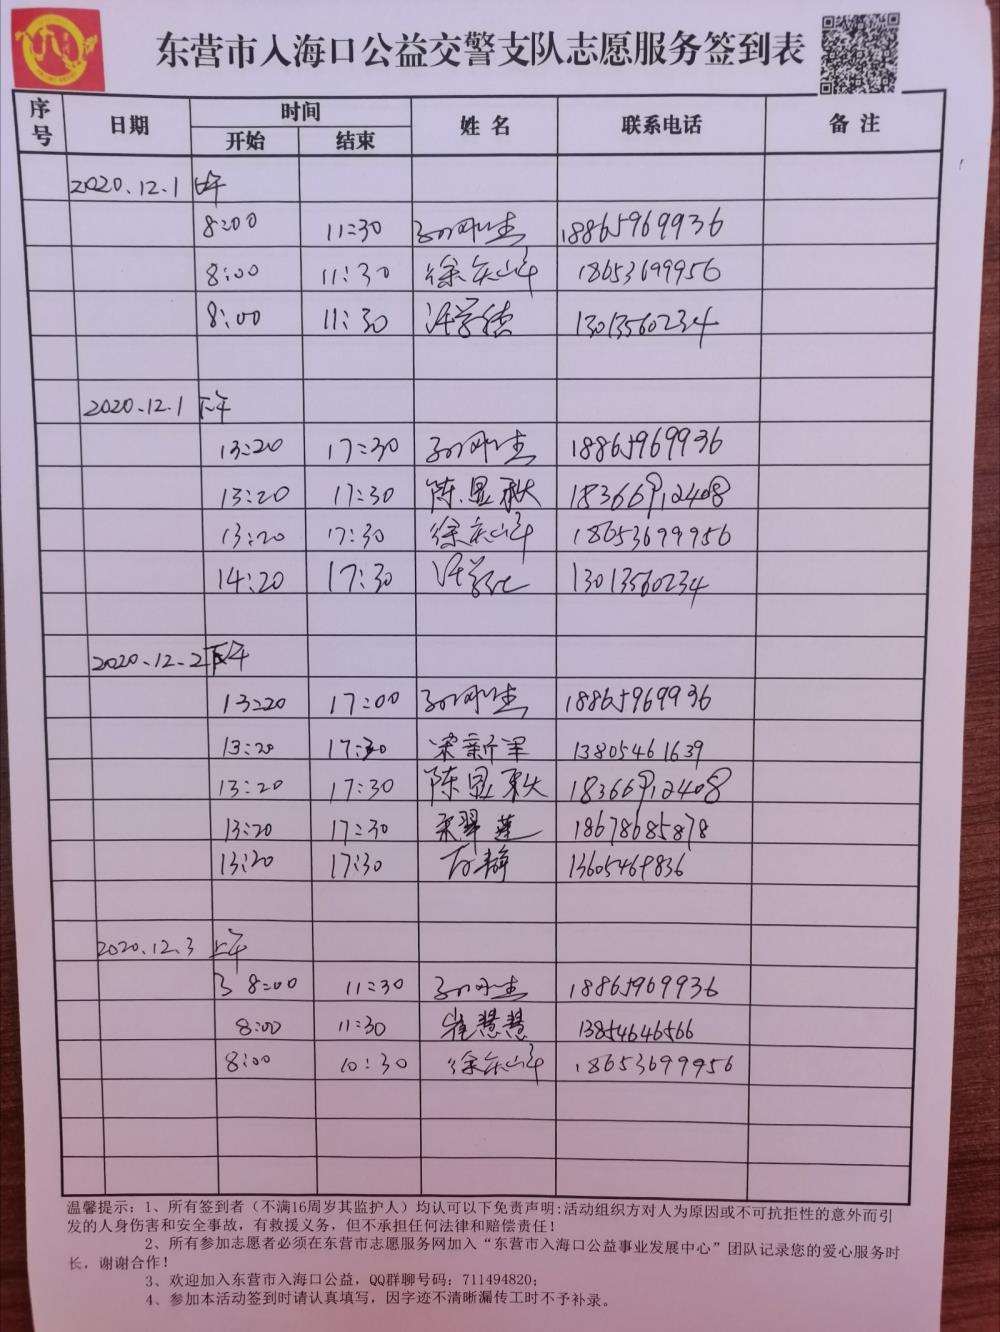 东营市入海口公益交警支队志愿服务签到表
序号 日期 时间 姓名 联系电话 备注
开始 结束
2020.12.1 上午
8:00 11:30 18865969936
8:00 11:30 徐庆山 18653699956
8:00 11:30 13013560234
2020.12.1 下午
13:20 17:30 18865969936
13:20 17:30 陈显秋 18366912408
13:20 17:30 徐庆山 18653699956
14:20 17:30 13013560234
2020.12.2 下午
13:20 17:00 18865969936
13:20 17:30 梁新军 13805461639
13:20 17:30 陈显秋 18366912408
13:20 17:30 翠莲 18678685878
13:20 17:30 静 13605469836
2020.12.3 上午
8:00 11:30 18865969936
8:00 11:30 崔慧慧 13854646566
8:00 10:30 徐庆山 18653699956
温馨提示：1、所有签到者（不满16周岁其监护人）均认可以下免责声明:活动组织方对人为原因或不可抗拒性的意外而引
发的人身伤害和安全事故，有救援义务，但不承担任何法律和赔偿责任！
2、所有参加志愿者必须在东营市志愿服务网加入“东营市入海口公益事业发展中心”团队记录您的爱心服务时
长，谢谢合作！
3、欢迎加入东营市入海口公益，QQ群聊号码：711494820；
4、参加本活动签到时请认真填写，因字迹不清晰漏传工时不予补录。